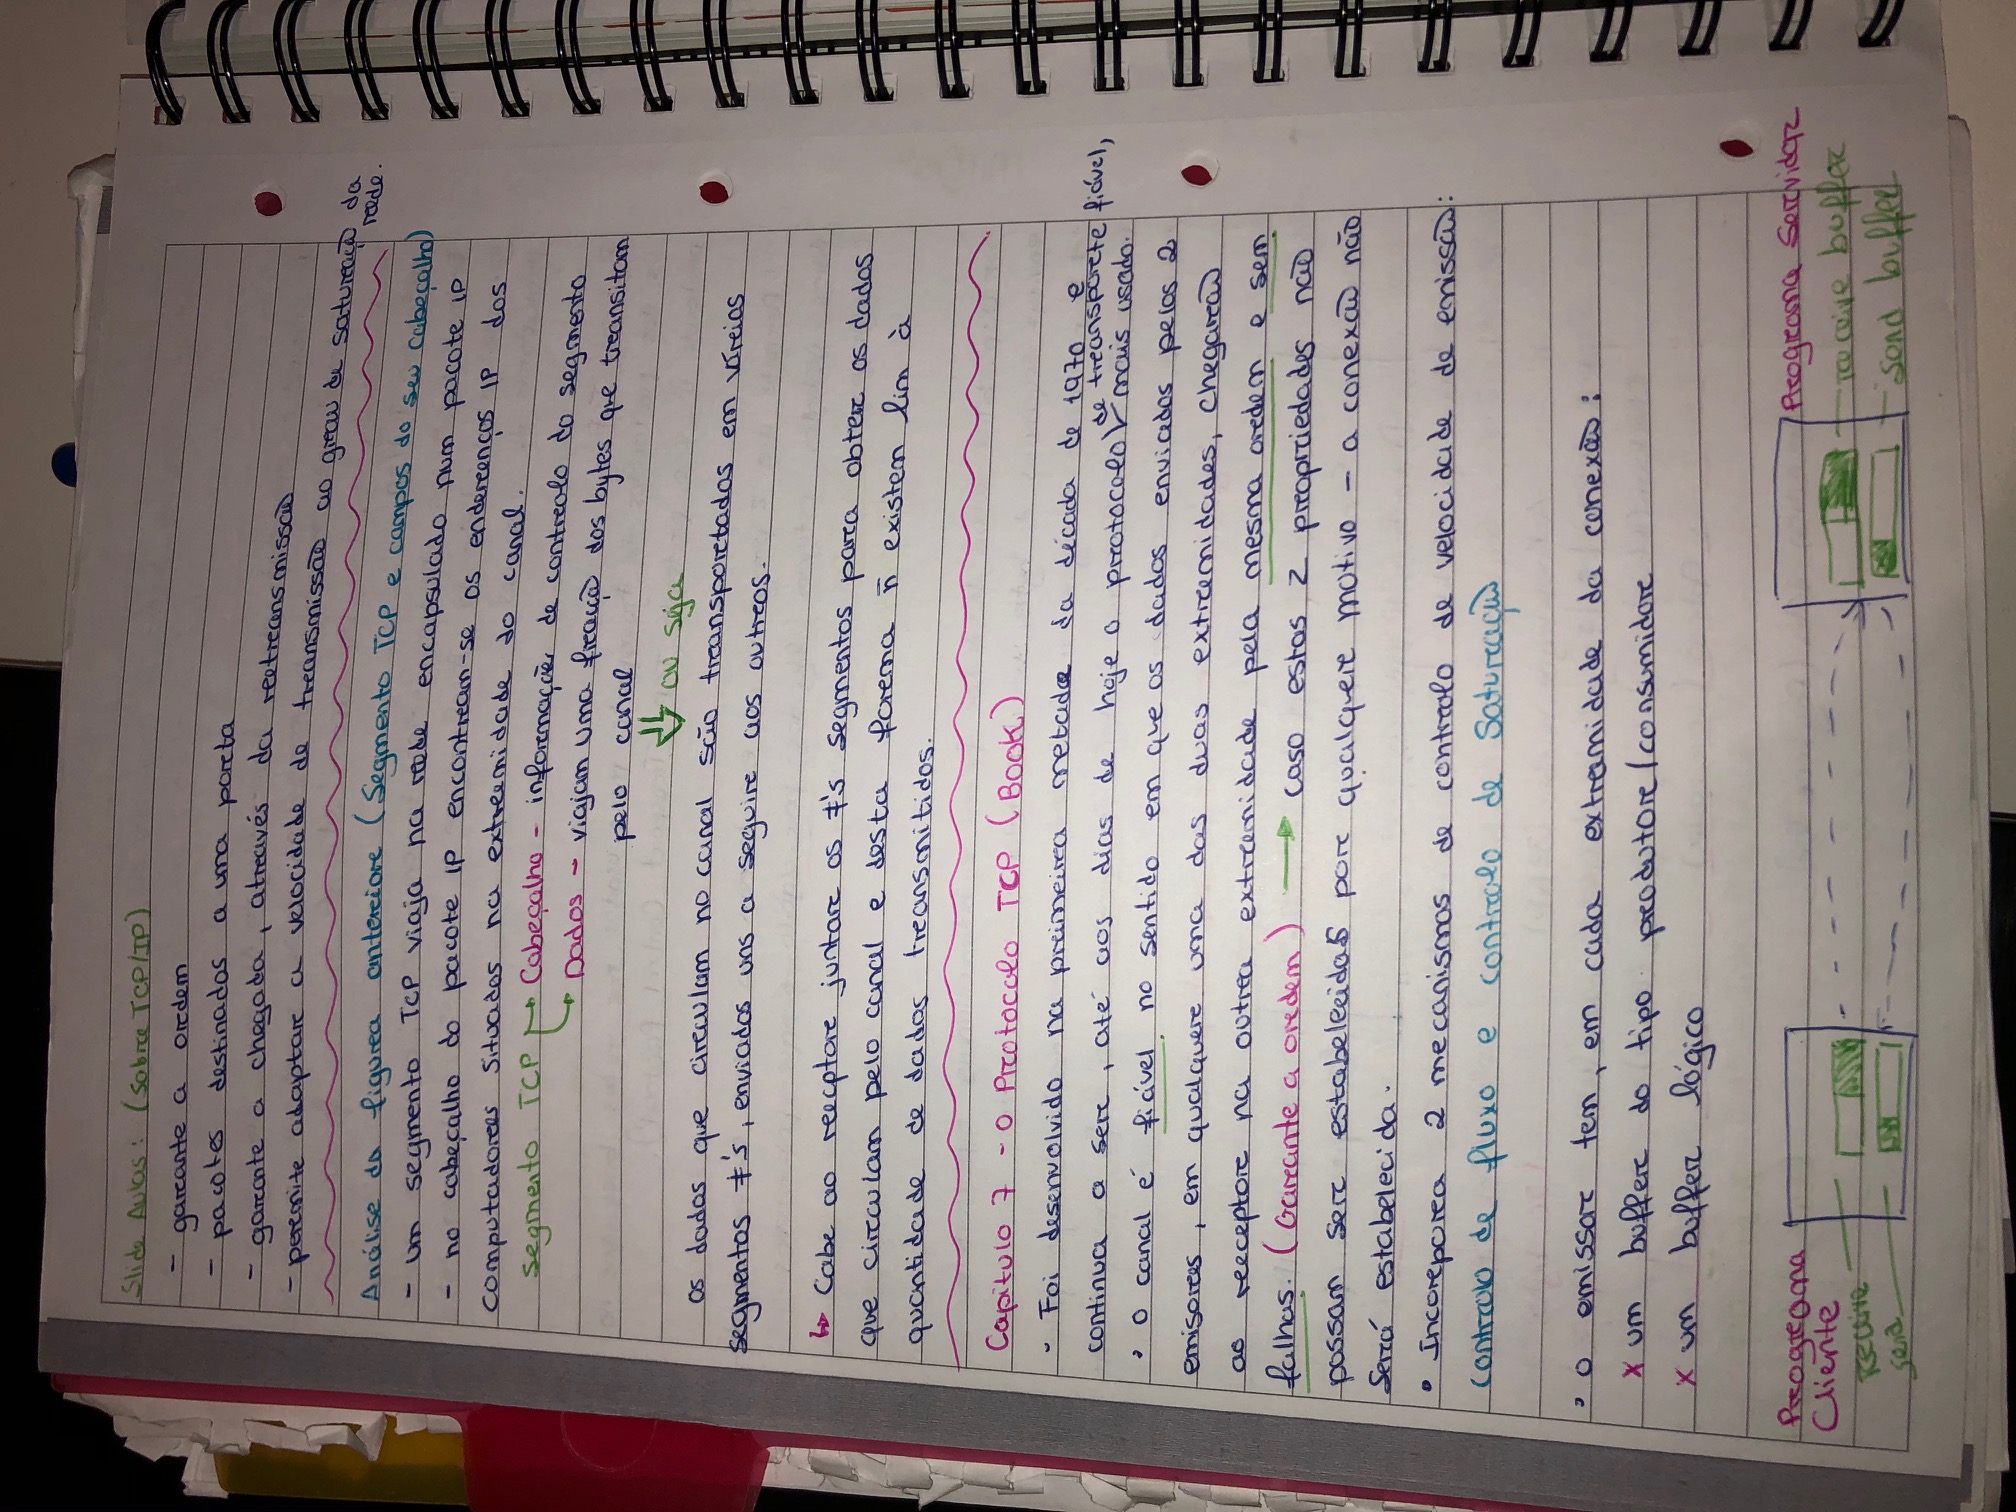 Slide Aulas: (Sobre TCP/IP)
- garante a ordem
- pacotes destinados a uma porta
- garante a chegada, através da retransmissão
- permite adaptar a velocidade de transmissão ao grau de saturação da rede.
Análise da figura anterior (Segmento TCP e campos do seu cabeçalho)
- um segmento TCP viaja na rede encapsulado num pacote IP
- no cabeçalho do pacote IP encontram-se os enderenços IP dos
computadores situados na extremidade do canal.
segmento TCP → Cabeçalho - informação de controlo do segmento
→ Dados - viajam uma fracção dos bytes que transitam
pelo canal
⇓ ou seja
os dados que circulam no canal são transportados em vários
segmentos ≠'s, enviados uns a seguir aos outros.
↳ Cabe ao recptor juntar os ≠'s segmentos para obter os dados
que circulam pelo canal e desta forma n̄ existem lim à
quantidade de dados transmitidos.
Capítulo 7 - O Protocolo TCP (BOOK)
- Foi desenvolvido na primeira metade da década de 1970 e
continua a ser, até aos dias de hoje o protocolo de transporte fiável, mais usado.
• O canal é fiável no sentido em que os dados enviados pelos 2
emisores, em qualquer uma das duas extremidades, chegarão
ao receptor na outra extremidade pela mesma ordem e sem
falhas. (Garante a ordem) → caso estas 2 propriedades não
possam ser estabelecidas por qualquer motivo - a conexão não
Será estabelecida.
• Incorpora 2 mecanismos de controlo de velocidade de emissão:
controlo de fluxo e controlo de Saturação
• O emissor tem, em cada extramidade da conexão:
x um buffer do tipo produtor/consumidor
x um buffer lógico
Programa Servidor
Programa
Cliente
receive buffer
Receive
send buffer
send